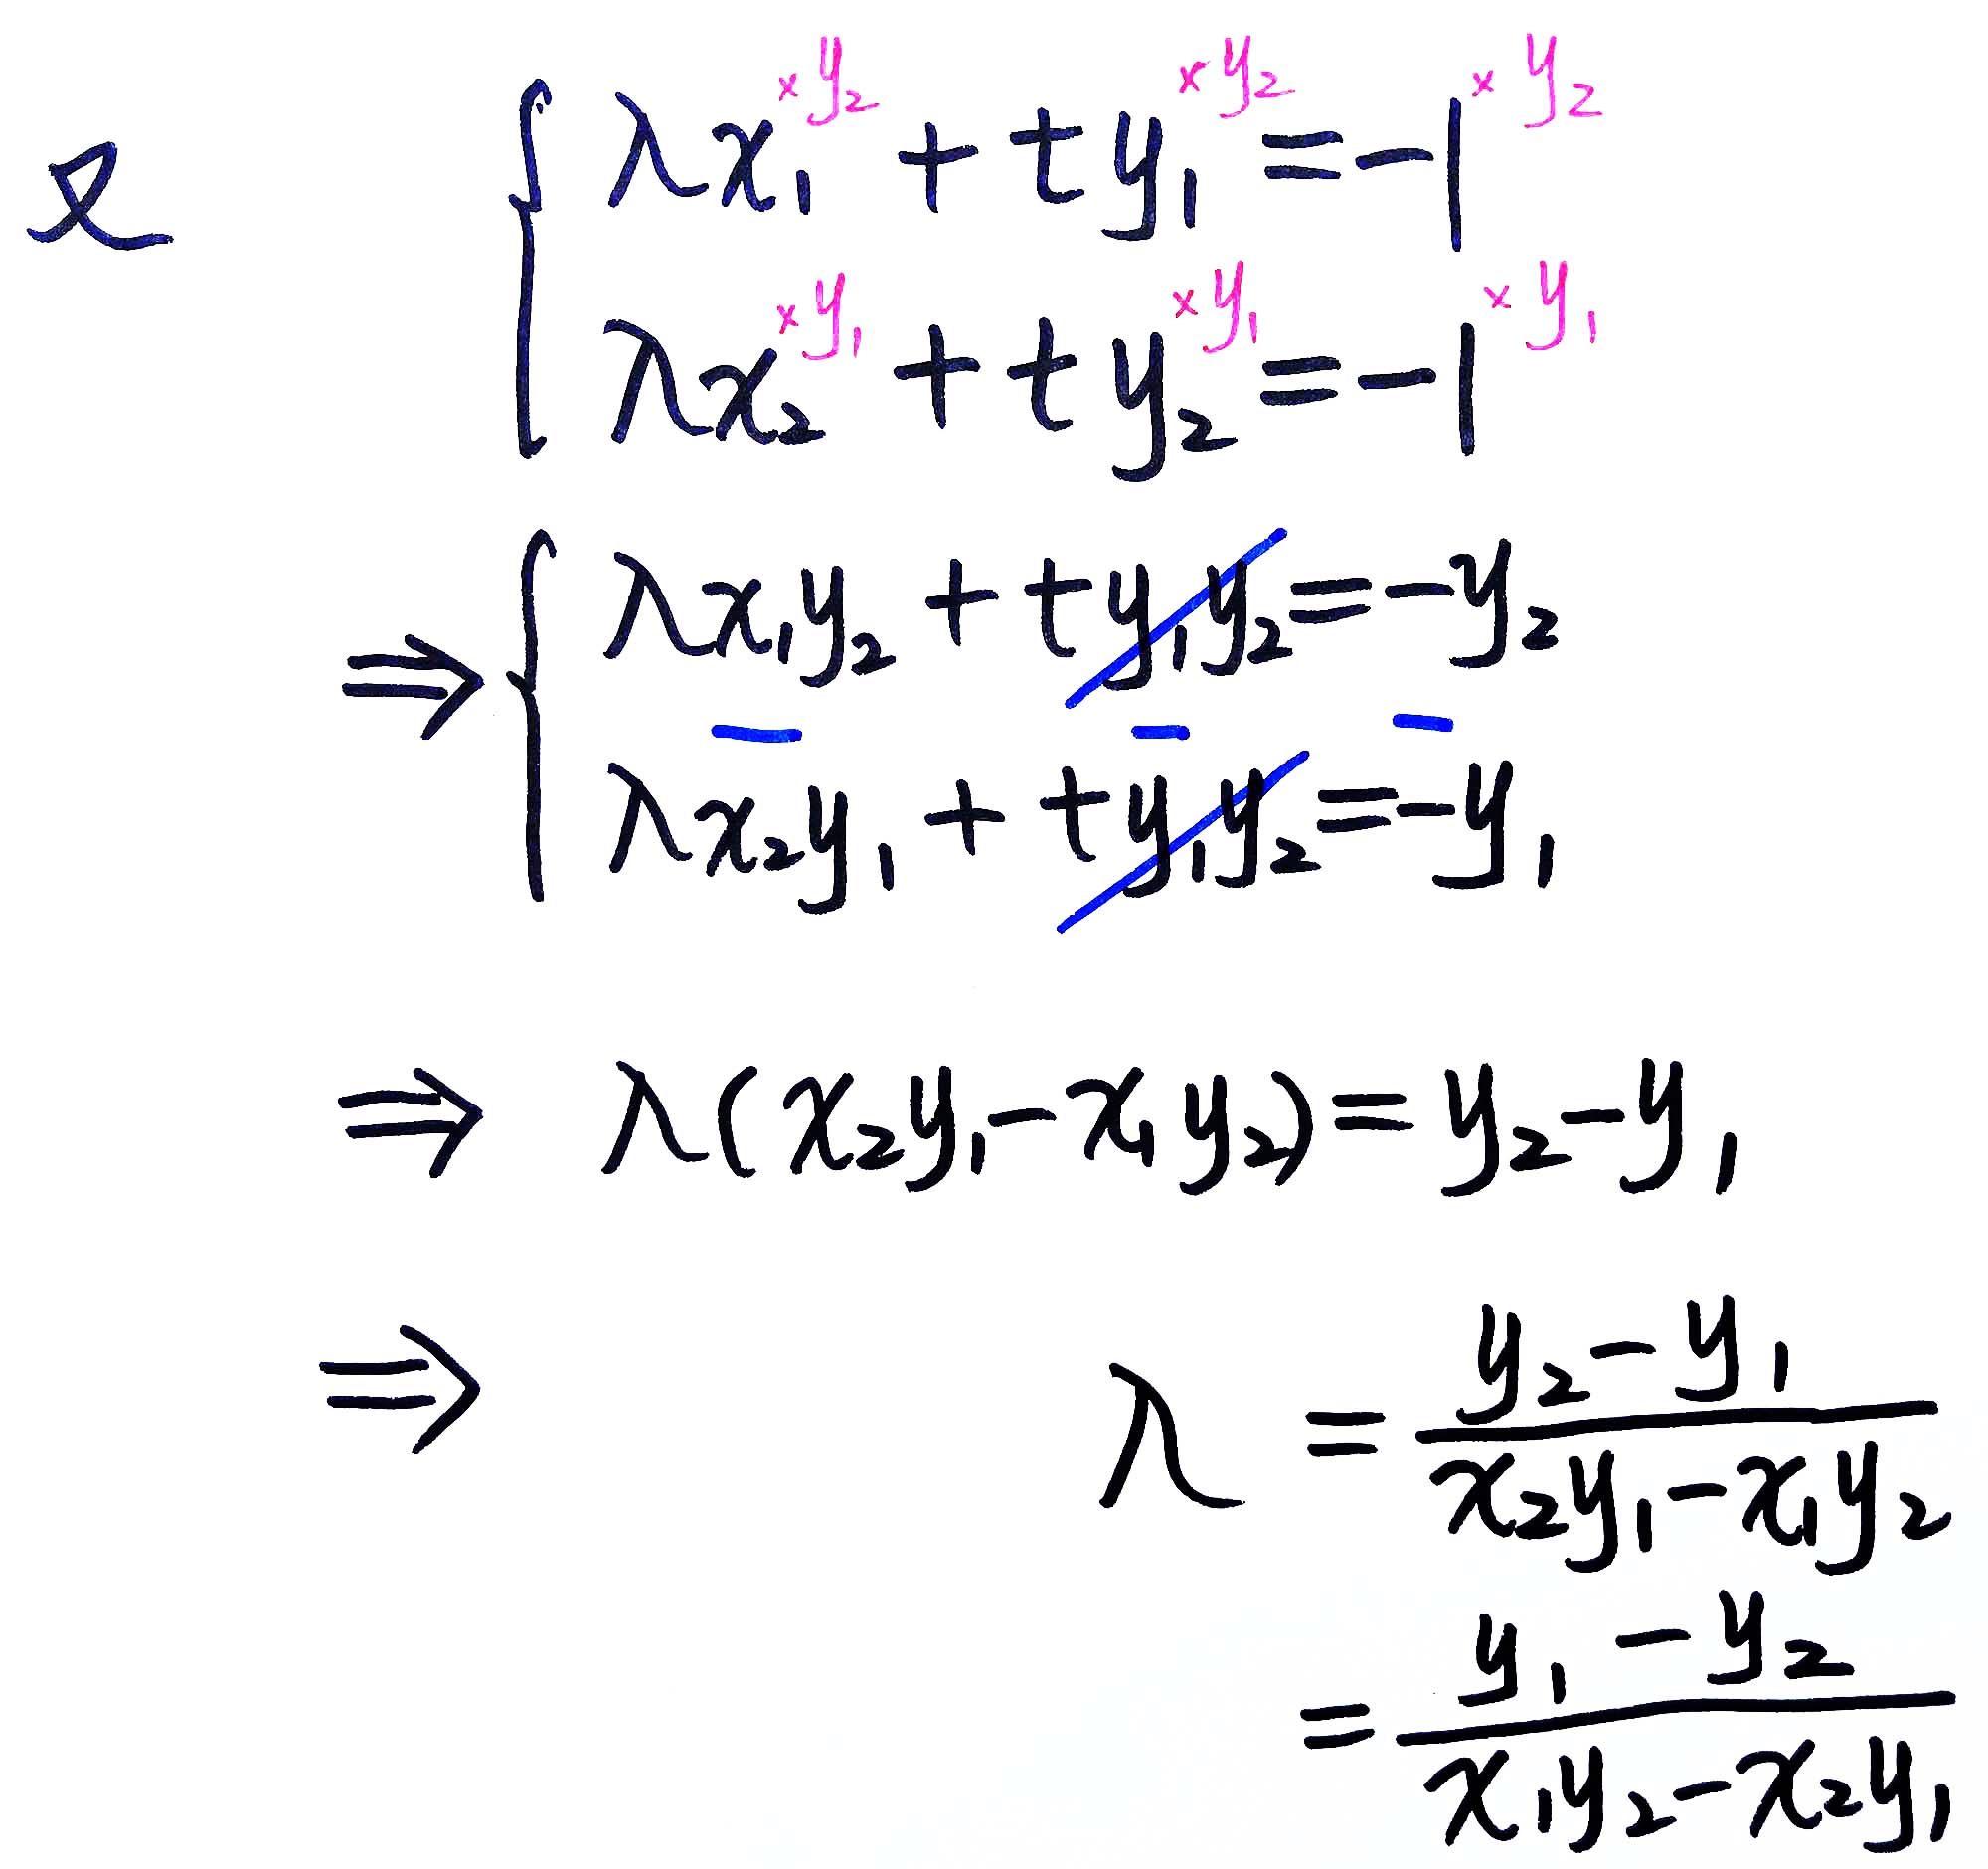 又 { λx₁ ×y₂ + ty₁ ×y₂ = -1 ×y₂
λx₂ ×y₁ + ty₂ ×y₁ = -1 ×y₁
⇒ { λx₁y₂ + ty₁y₂ = -y₂
− − −
λx₂y₁ + ty₁y₂ = -y₁
⇒ λ(x₂y₁ - x₁y₂) = y₂ - y₁
⇒ λ = (y₂ - y₁)/(x₂y₁ - x₁y₂)
= (y₁ - y₂)/(x₁y₂ - x₂y₁)